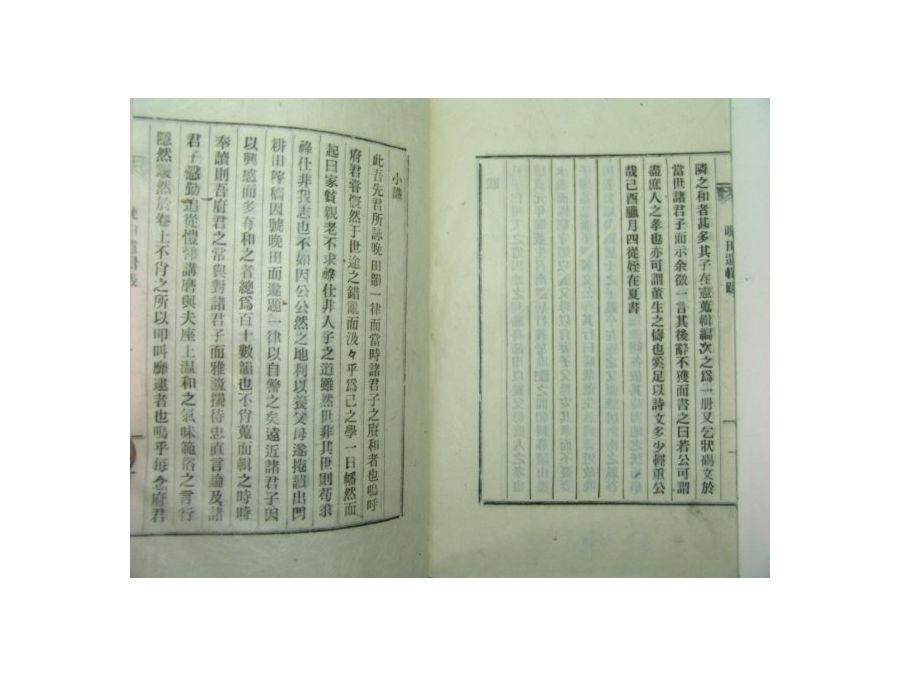 晚田遺輯跋
隣之和者甚多其子在憲蒐輯編次之爲一册又乞狀碣文於
當世諸君子而示余徵一言其後辭不獲而書之曰若公可謂
盡庶人之孝也亦可謂董生之儔也奚足以詩文多少輕重公
哉己酉臘月四從姪在夏書
小識
此吾先君所詠晚田韻一律而當時諸君子之賡和者也嗚呼
府君嘗慨然于世途之錯亂而汲々乎爲己之學一日幡然而
起曰家貧親老不求祿仕非人子之道雖然世非其世則苟求
祿仕非我志也不如因公公然之地利以養父母遂捲讀出門
耕田 稿因號晚田而遂題一律以自警之矣遠近諸君子因
以興感而多有和之者總爲百十數韻也不肖蒐而輯之時時
奉讀則吾府君之常與對諸君子而雅 待忠直言論及諸
君子慇勤追從 講磨與夫座上溫和之氣味範俗之言行
隱然 然於卷上不肖之所以叩叫靡逮者也嗚乎每念府君